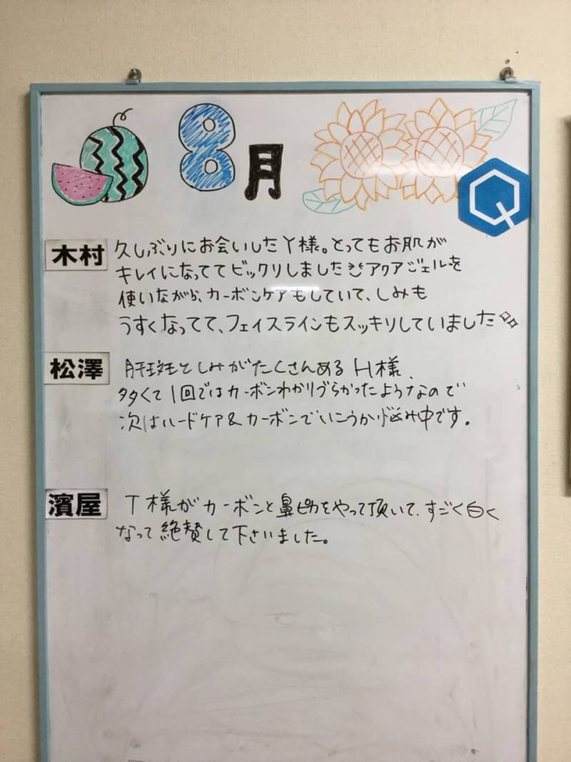 8月
Q
木村
久しぶりにお会いしたY様。とってもお肌が
キレイになっててビックリしました アクアジェルを
使いながら、カーボンケアもしていて、しみも
うすくなってて、フェイスラインもスッキリしていました
松澤
肝斑としみがたくさんあるH様、
多くて1回ではカーボンわかりづらかったようなので
次はハードケア&カーボンでいこうか悩み中です。
濱屋
T様がカーボンと鼻ピカをやって頂いて、すごく白く
なって絶賛して下さいました。